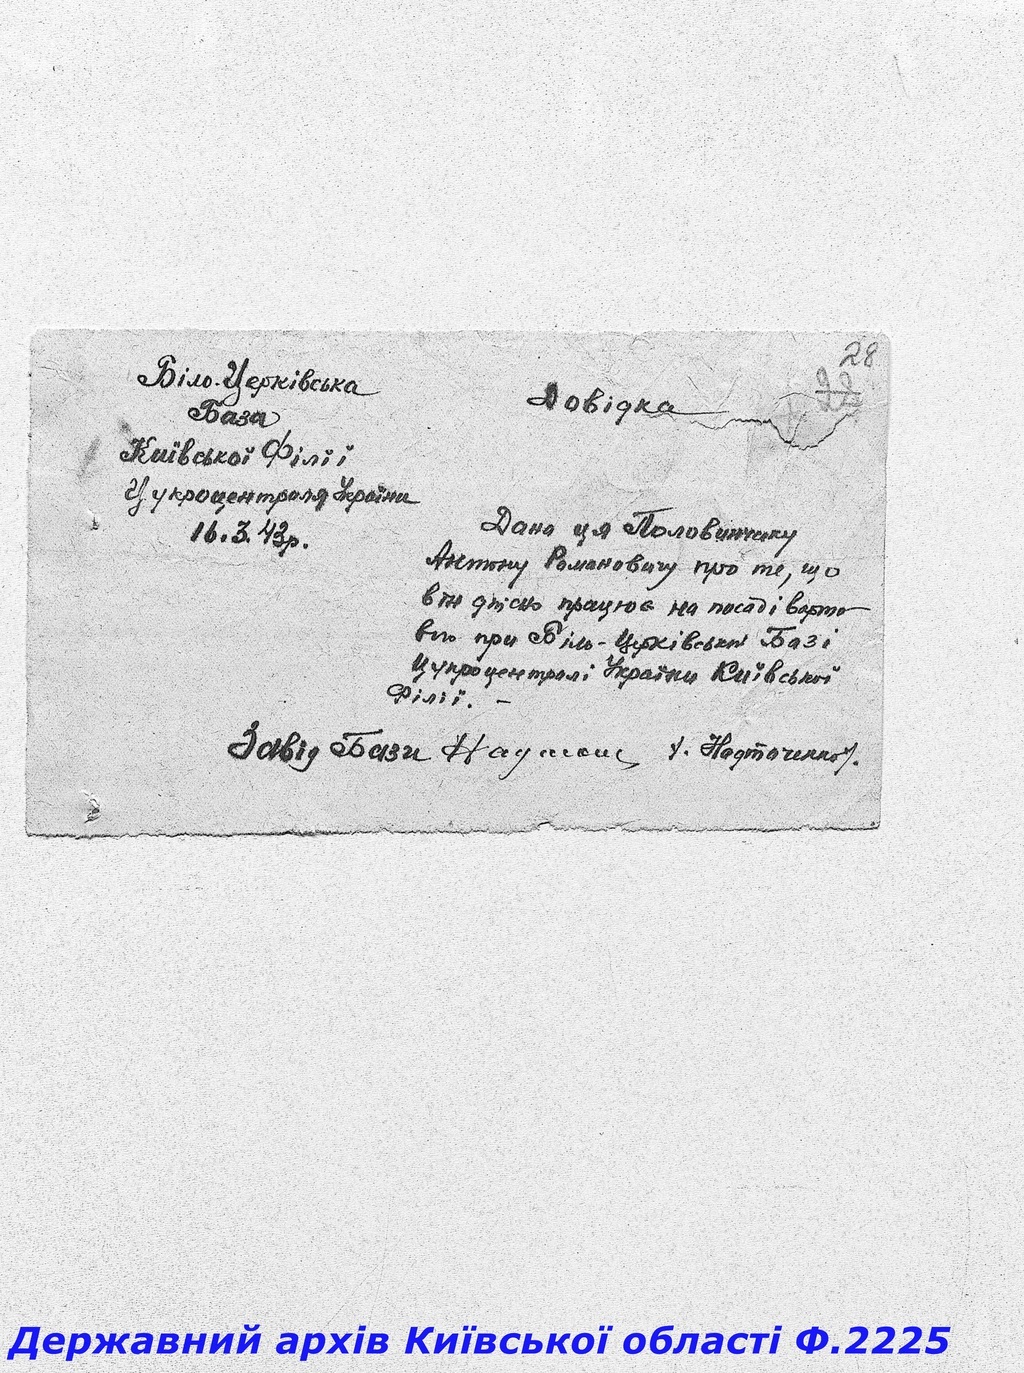 28
22
Біло-Церківська
База
Київської Філії
Цукроцентраля України
16.3.43р.
Довідка
Дана ця Половинчику
Антону Романовичу про те, що
він дійсно працює на посаді варто-
вого при Біло-Церківській Базі
Цукроцентралі України Київської
Філії. –
Завід Бази /. Надточенко/.
Державний архів Київської області Ф.2225